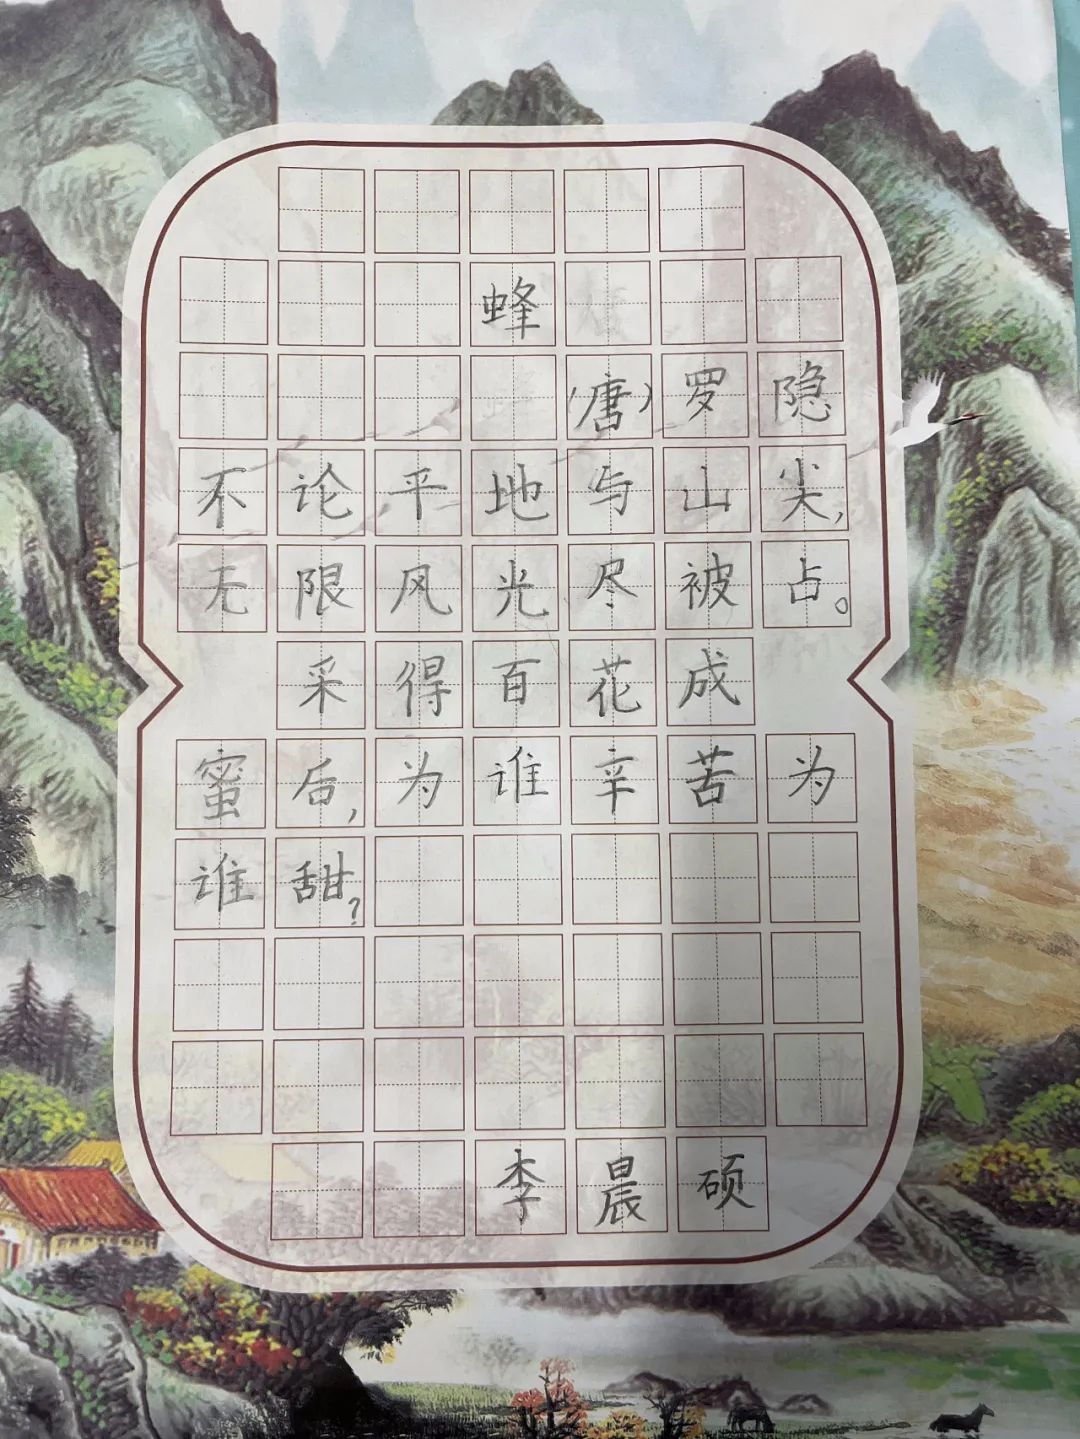 蜂
(唐)罗隐
不论平地与山尖,
无限风光尽被占。
采得百花成
蜜后,为谁辛苦为
谁甜?
李晨硕